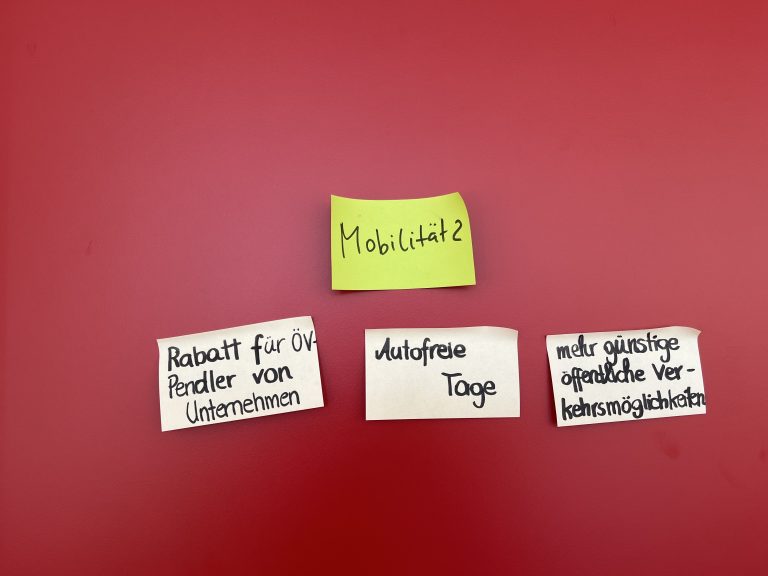 Mobilität 2
Rabatt für ÖV-
Pendler von
Unternehmen
Autofreie
Tage
mehr günstige
öffentliche Ver-
kehrsmöglichkeiten